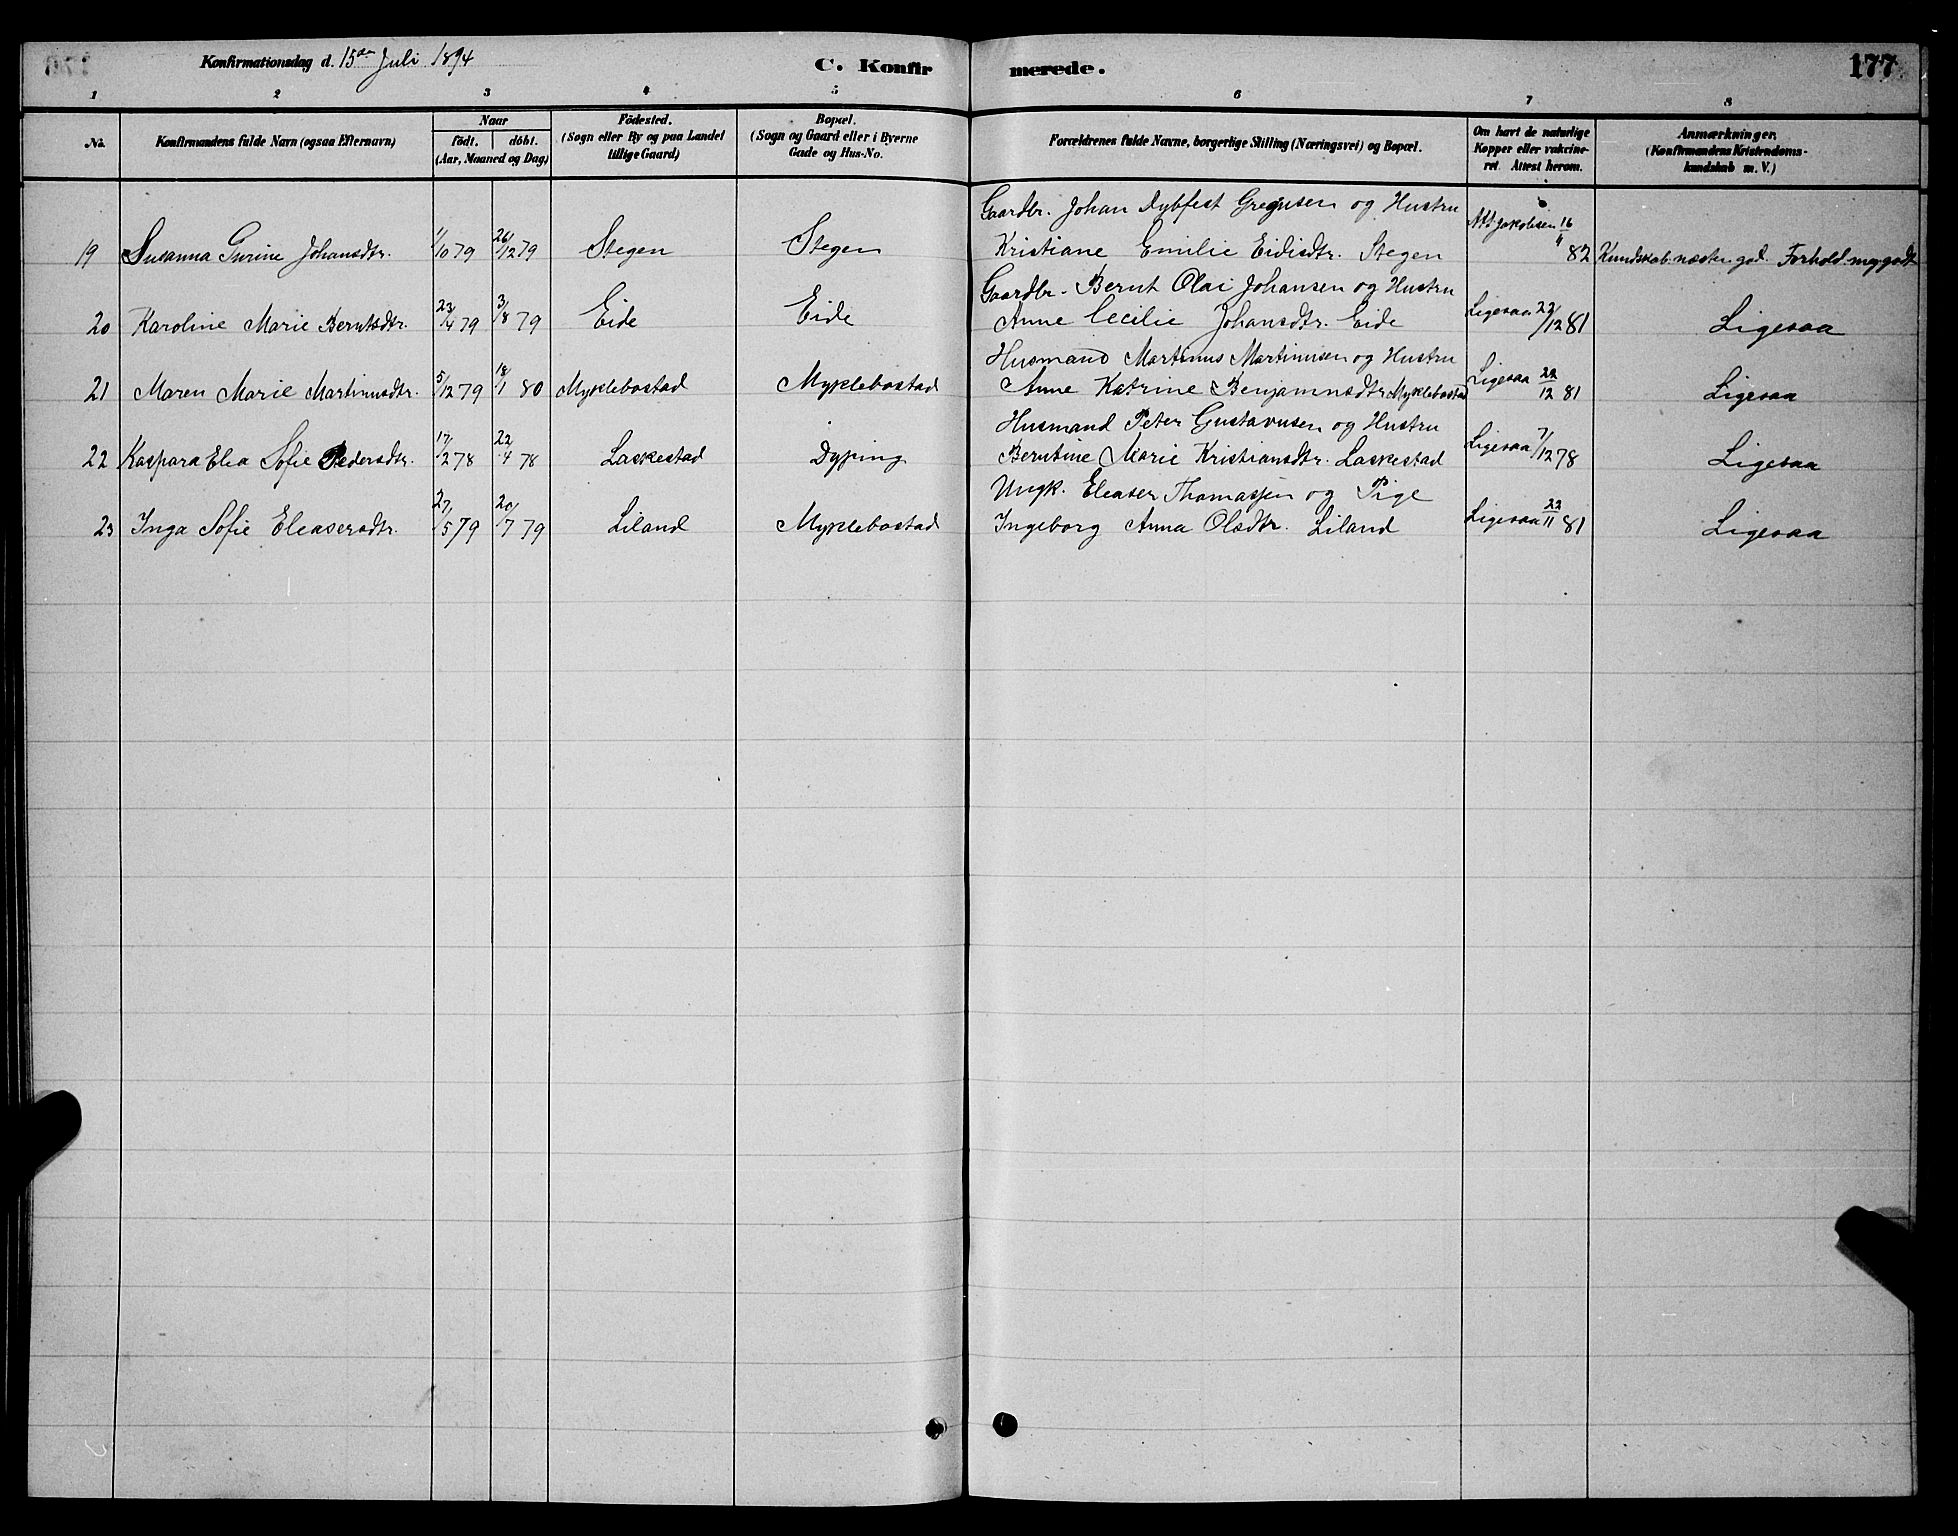 Konfirmationsdag d. 15de Juli 1894 C. Konfirmerede. 177
1 2 3 4 5 6 7 8
No. Konfirmandens fulde Navn (ogsaa Efternavn) Naar födt. döbt. (Aar, Maaned og Dag) Födested. (Sogn eller By og paa Landet tillige Gaard) Bopæl. (Sogn og Gaard eller i Byerne Gade og Hus-No. Forældrenes fulde Navne, borgerlige Stilling (Næringsvei) og Bopæl. Om havt de naturlige Kopper eller vakcineret. Attest herom. Anmærkninger. (Konfirmandens Kristendomskundskab m. V.)
Gaardbr. Johan Dybfest Gregusen og Hustru
19 Susanna Gurine Johansdtr. 1/10 79 26/12 79 Stegen Stegen Kristiane Emilie Eidisdtr. Stegen Att. Jakobsen 16/11 82 Kundskab næsten god. Forhold meg. godt
Gaardbr. Bernt Olai Johansen og Hustru
20 Karoline Marie Berntsdtr. 23/4 79 3/8 79 Eide Eide Anne Cecilie Johansdtr. Eide Ligesaa 22/12 81 Ligesaa
Husmand Martinus Martinusen og Hustru
21 Maren Marie Martinusdtr. 5/12 79 18/1 80 Myklebostad Myklebostad Anne Katrine Benjaminsdtr. Myklebostad Ligesaa 22/12 81 Ligesaa
Husmand Peter Gustavusen og Hustru
22 Kaspara Elea Sofie Pedersdtr. 17/2 78 22/4 78 Laskestad Dyping Berntine Marie Kristiansdtr. Laskestad Ligesaa 7/12 78 Ligesaa
Ungk. Eleaser Thomassen og Pige
23 Inga Sofie Eleasersdtr. 27/5 79 20/7 79 Liland Myklebostad Ingeborg Anna Olsdtr. Liland Ligesaa 22/11 81 Ligesaa